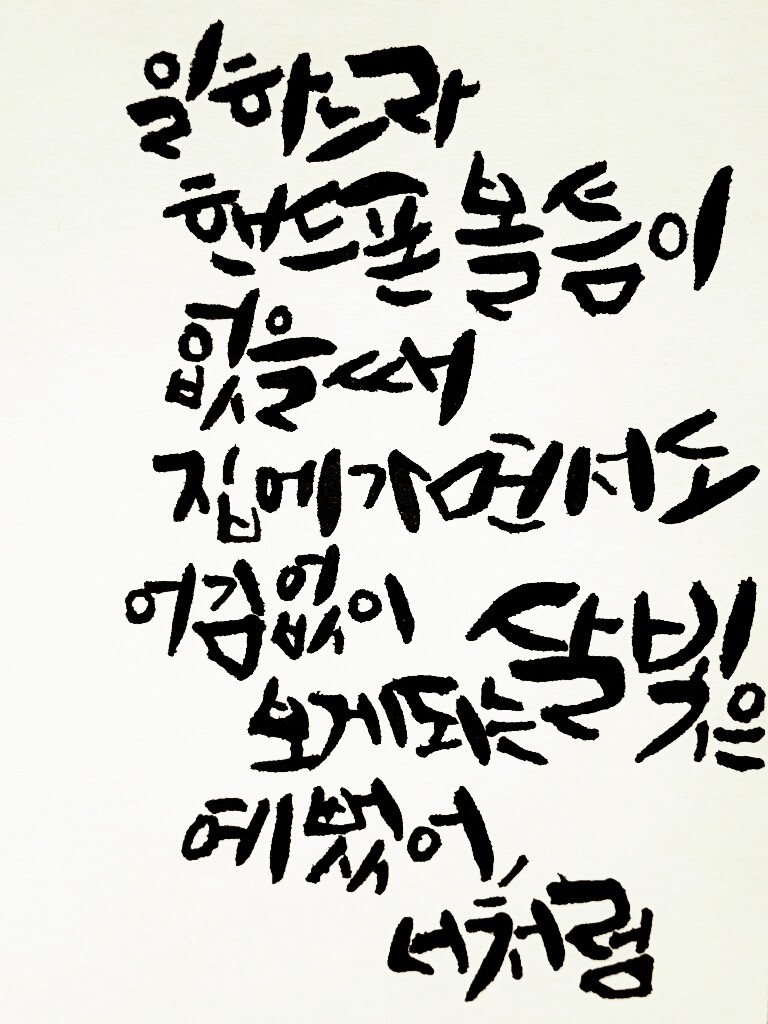 일하느라
핸드폰 볼 틈이
없을 때
집에 가면서도
어김없이 달빛은
보게되는
예뻤어
너처럼